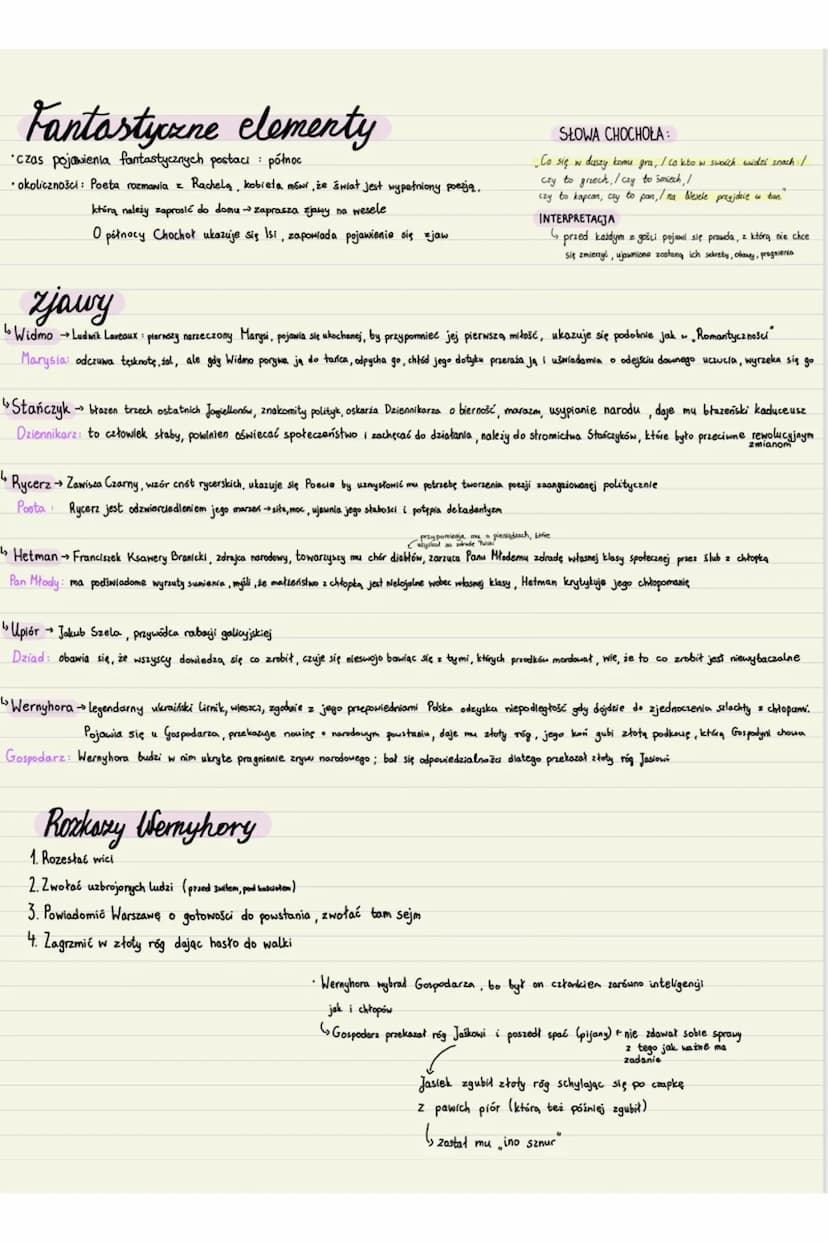 Fantastyczne elementy
·czas pojawienia fantastycznych postaci : północ
·okoliczności: Poeta rozmawia z Rachelą, kobieta mówi, że świat jest wypełniony poezją,
którą należy zaprosić do domu → zaprasza zjawy na wesele
O północy Chochoł ukazuje się Isi, zapowiada pojawienie się zjaw
SŁOWA CHOCHOŁA:
„Co się w duszy komu gra, / co kto w swoich widzi snach: /
czy to grzech, / czy to śmiech, /
czy to kapcan, czy to pan, / na Wesele przyjdzie w tan."
INTERPRETACJA
↳ przed każdym z gości pojawi się prawda, z którą nie chce
się zmierzyć, ujawnione zostaną ich sekrety, obawy, pragnienia
zjawy
↳Widmo → Ludwik de Laveaux : pierwszy narzeczony Marysi, pojawia się ukochanej, by przypomnieć jej pierwszą miłość, ukazuje się podobnie jak w „Romantyczności"
Marysia: odczuwa tęsknotę, żal, ale gdy Widmo porywa ją do tańca, odpycha go, chłód jego dotyku przeraża ją i uświadamia o odejściu dawnego uczucia, wyrzeka się go
↳Stańczyk → błazen trzech ostatnich Jagiellonów, znakomity polityk, oskarża Dziennikarza o bierność, marazm, usypianie narodu, daje mu błazeński kaduceusz
Dziennikarz: to człowiek słaby, powinien oświecać społeczeństwo i zachęcać do działania, należy do stronnictwa Stańczyków, które było przeciwne rewolucyjnym
zmianom
↳ Rycerz → Zawisza Czarny, wzór cnót rycerskich, ukazuje się Poecie by uzmysłowić mu potrzebę tworzenia poezji zaangażowanej politycznie
Poeta : Rycerz jest odzwierciedleniem jego marzeń → siła, moc, ujawnia jego słabości i potępia dekadentyzm
przypominając mu o pieniądzach, które
otrzymał za zdradę Polski
↳ Hetman → Franciszek Ksawery Branicki, zdrajca narodowy, towarzyszy mu chór diabłów, zarzuca Panu Młodemu zdradę własnej klasy społecznej przez ślub z chłopką
Pan Młody: ma podświadome wyrzuty sumienia, myśli, że małżeństwo z chłopką jest nielojalne wobec własnej klasy, Hetman krytykuje jego chłopomanię
↳Upiór → Jakub Szela, przywódca rabacji galicyjskiej
Dziad: obawia się, że wszyscy dowiedzą się co zrobił, czuje się nieswojo bawiąc się z tymi, których przodków mordował, wie, że to co zrobił jest niewybaczalne
↳Wernyhora → legendarny ukraiński lirnik, wieszcz, zgodnie z jego przepowiedniami Polska odzyska niepodległość gdy dojdzie do zjednoczenia szlachty z chłopami.
Pojawia się u Gospodarza, przekazuje nowinę o narodowym powstaniu, daje mu złoty róg, jego koń gubi złotą podkowę, którą Gospodyni chowa
Gospodarz: Wernyhora budzi w nim ukryte pragnienie zrywu narodowego ; bał się odpowiedzialności dlatego przekazał złoty róg Jasiowi
Rozkazy Wernyhory
1. Rozesłać wici
2. Zwołać uzbrojonych ludzi (przed świtem, pod kościołem)
3. Powiadomić Warszawę o gotowości do powstania, zwołać tam sejm
4. Zagrzmić w złoty róg dając hasło do walki
· Wernyhora wybrał Gospodarza, bo był on członkiem zarówno inteligencji
jak i chłopów
↳Gospodarz przekazał róg Jaśkowi i poszedł spać (pijany) ← nie zdawał sobie sprawy
z tego jak ważne ma
zadanie
Jasiek zgubił złoty róg schylając się po czapkę
z pawich piór (którą też później zgubił)
↳ został mu „ino sznur"